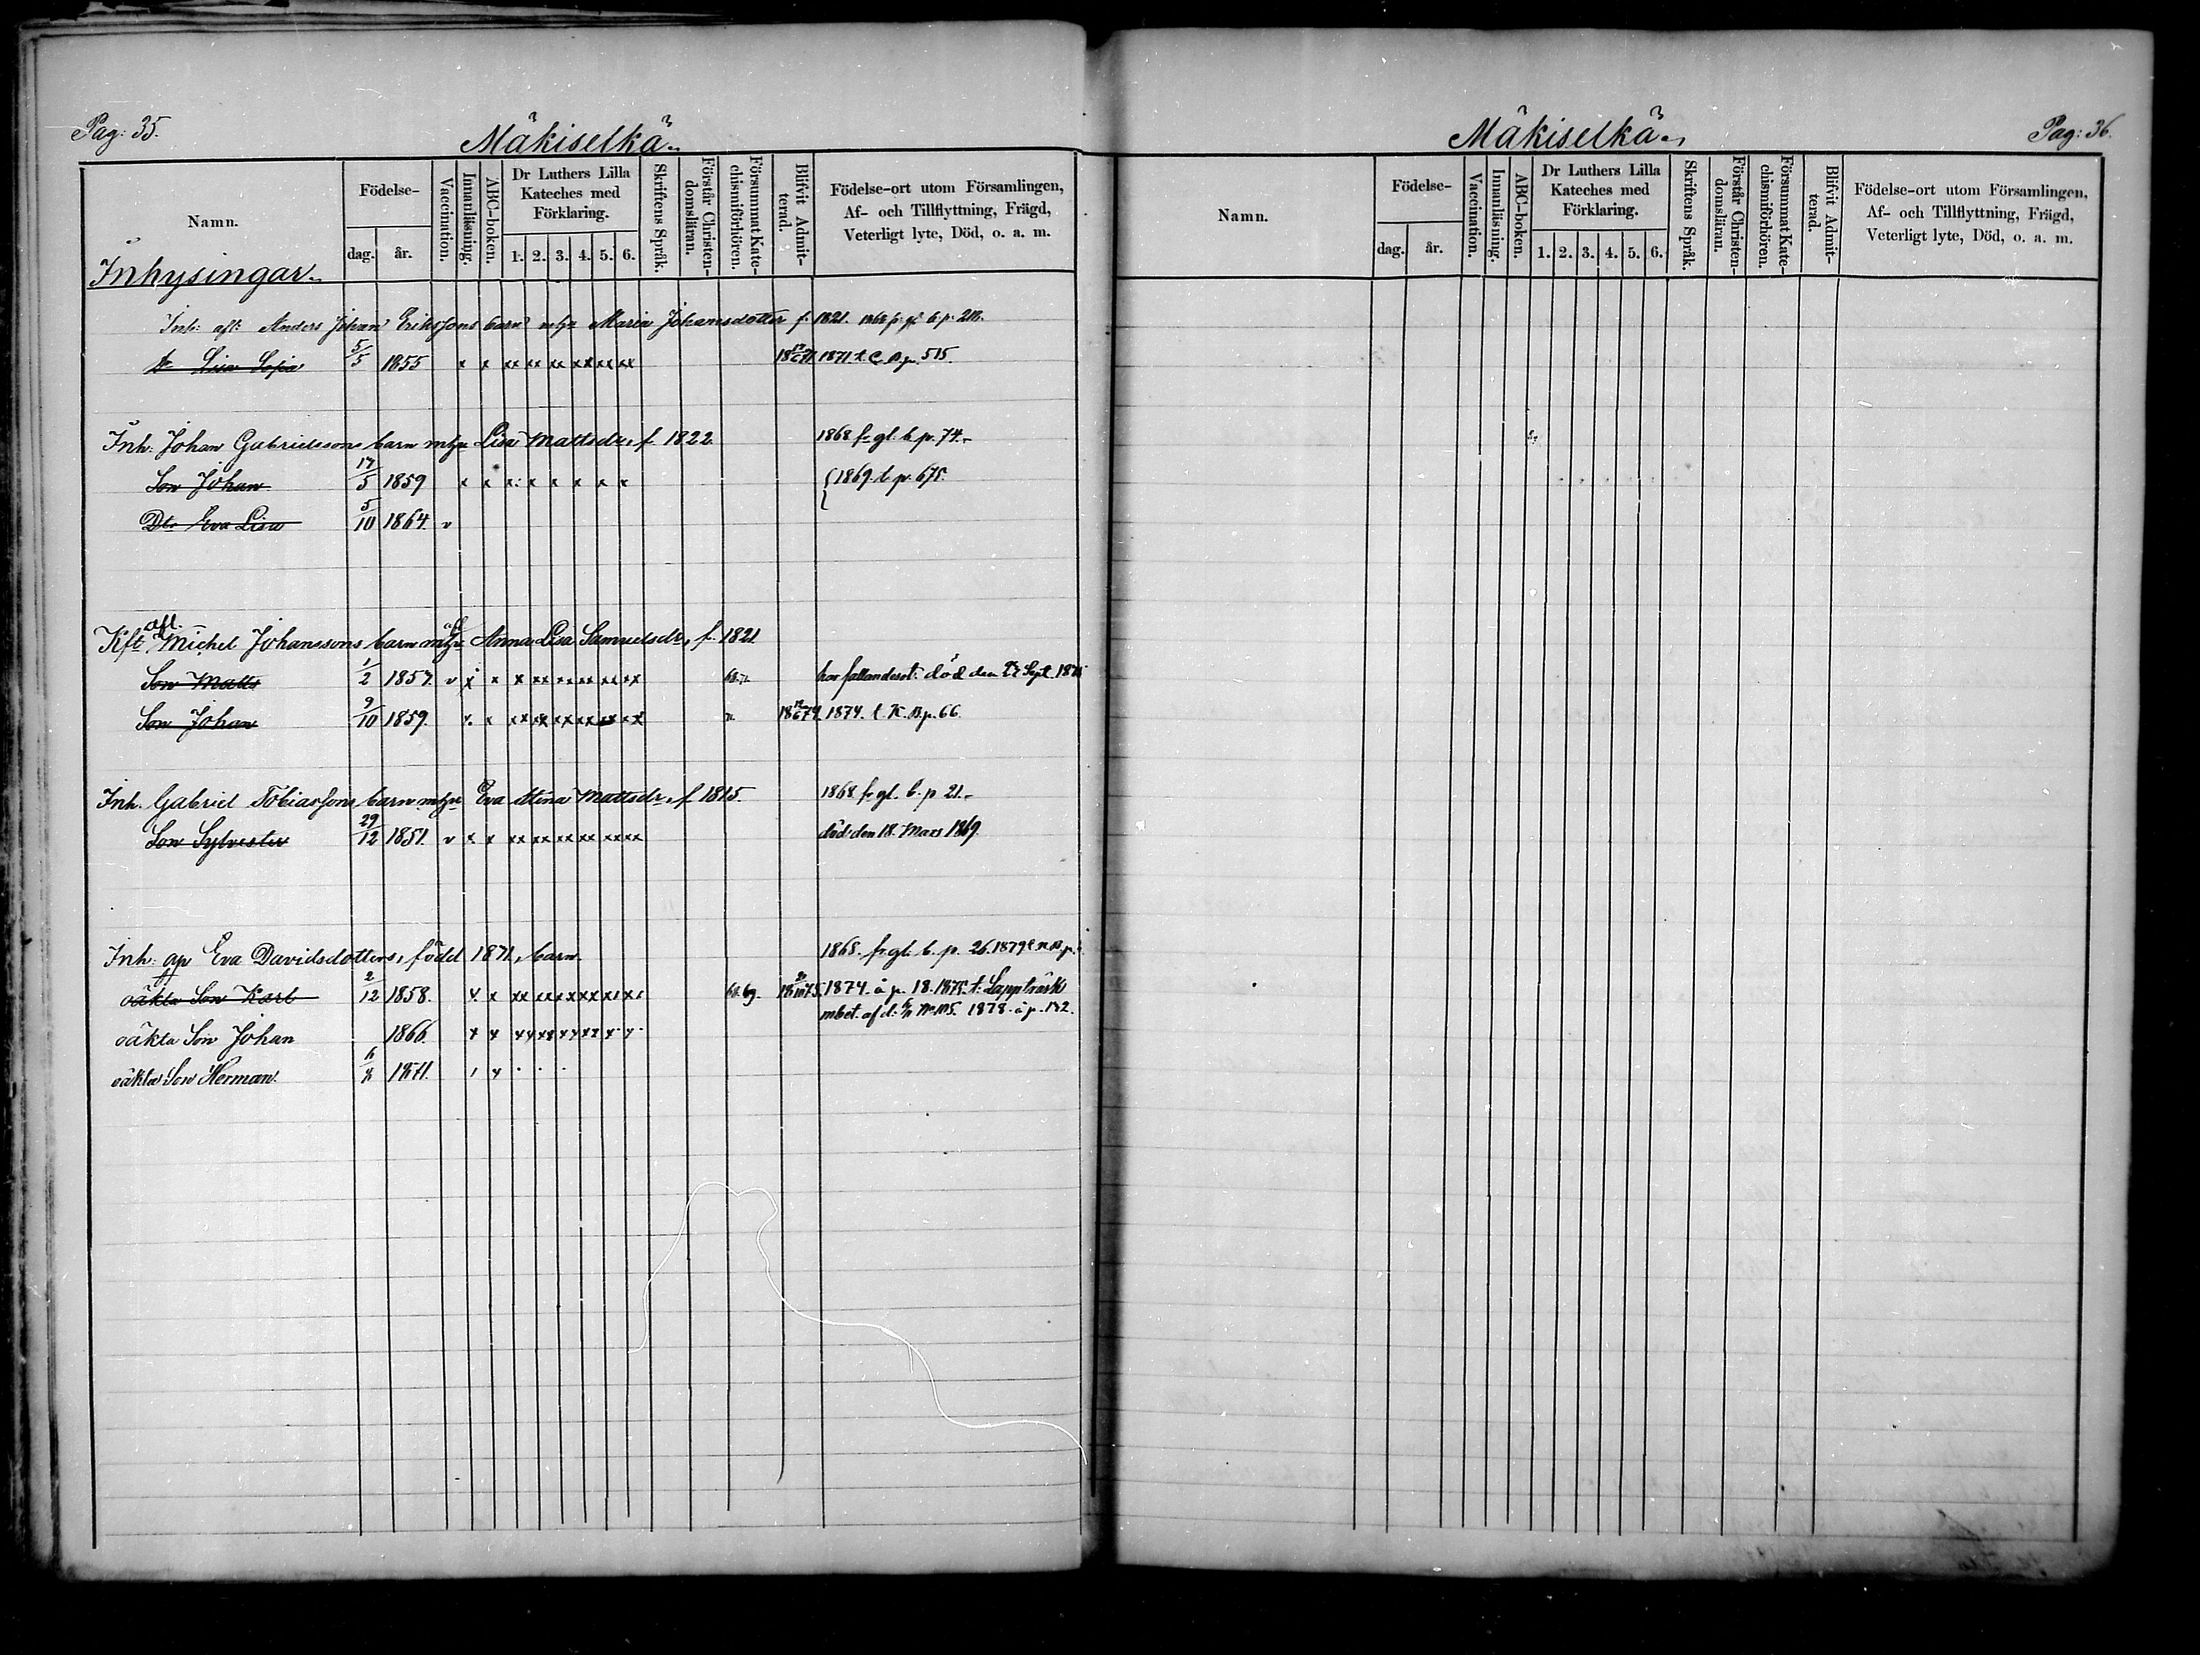 Pag: 35.
Mäkiselkä
Namn.
Födelse-
dag. år.
Vaccination.
Innanläsning.
ABC-boken.
Dr Luthers Lilla
Kateches med
Förklaring.
1. 2. 3. 4. 5. 6.
Skriftens Språk.
Förstår Christen-
domsläran.
Försummat Kate-
chismiförhören.
Blifvit Admit-
terad.
Födelse-ort utom Församlingen,
Af- och Tillflyttning, Frägd,
Veterligt lyte, Död, o. a. m.
Inhysingar
Inh: afl: Anders Johan Erikssons barn mhu Maria Johansdotter f. 1821. 1868 fr gl. b. p. 218.
Lisa Sofia 5/5 1855 x x xx xx xx xx xx xx 1871 t. C. B. p. 515.
Inh: Johan Gabrielssons barn mhu Lisa Mattsdr, f. 1822 1868 fr gl. b. p. 74.
Son Johan 17/5 1859 x x x x x x x x { 1869. b p. 675.
Dtr Eva Lisa 5/10 1864. v
Kft afl. Michel Johanssons barn mhu Anna Lisa Samuelsdr, f. 1821
Son Matts 1/2 1857. v x x x xx xx xx xx xx har fallandesot. död den Sept 187
Son Johan 9/10 1859. x x xx xx xx xx xx xx 1874. t. K. B. p. 66
Inh. Gabriel Tobiassons barn mhu Eva Stina Mattsdr, f 1815. 1868 fr gl. b. p 21.
Son Sylvester 29/12 1851. v x x xx xx xx xx xx xx död den 18. Mars 1869.
Inh: Eva Davidsdotters, född 1871, barn 1868. fr gl. b. p. 26. 1879 t. N. B. p.
oäkta Son Karl 2/12 1858. x x xx xx xx xx xx xx 68. 69. 1874. å p. 18. 1875. t. Lappträsk
mbet. af d. No 105. 1878. å p. 132.
oäkta Son Johan 1866. x x xx xx xx xx x x
oäkta Son Herman. 1871.
Mäkiselkä
Pag: 36.
Namn.
Födelse-
dag. år.
Vaccination.
Innanläsning.
ABC-boken.
Dr Luthers Lilla
Kateches med
Förklaring.
1. 2. 3. 4. 5. 6.
Skriftens Språk.
Förstår Christen-
domsläran.
Försummat Kate-
chismiförhören.
Blifvit Admit-
terad.
Födelse-ort utom Församlingen,
Af- och Tillflyttning, Frägd,
Veterligt lyte, Död, o. a. m.